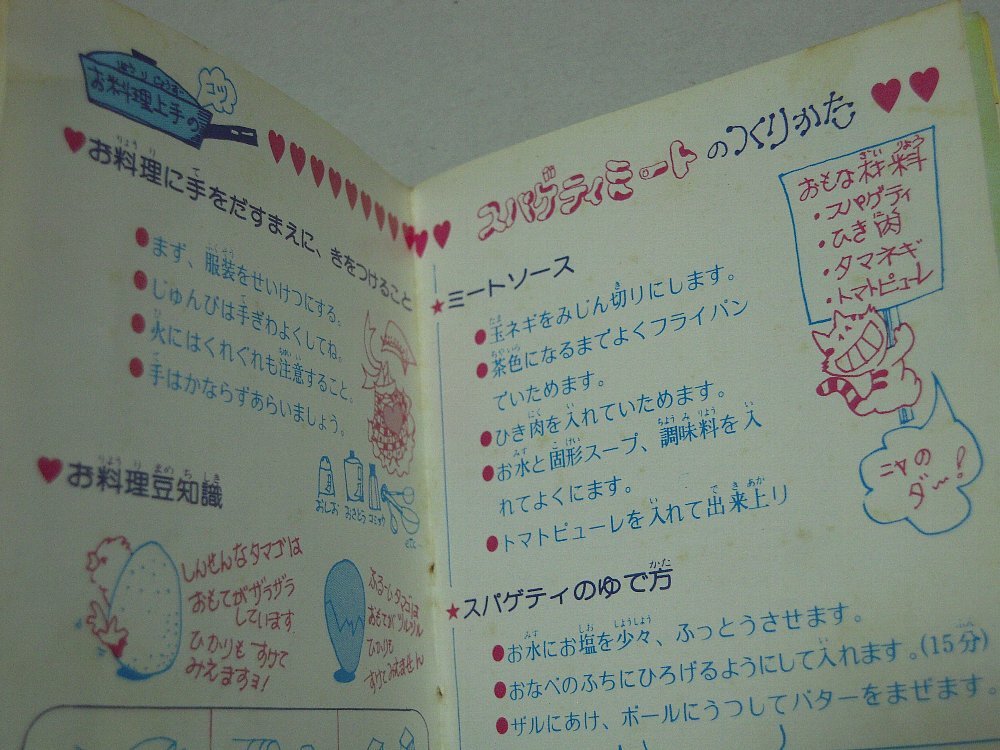 お料理上手の
コツ
お料理に手をだすまえに、きをつけること
まず、服装をせいけつにする。
じゅんびは手ぎわよくしてね。
火にはくれぐれも注意すること。
手はかならずあらいましょう。
おしお
おさとう
お料理豆知識
しんせんなタマゴは
おもてがザラザラ
しています
ひかりもすけて
みえますヨ!
ふるーいタマゴは
おもてがツルツル
ひかりも
すけてみえません
スパゲティミートのつくりかた
おもな材料
・スパゲティ
・ひき肉
・タマネギ
・トマトピューレ
ニャの
ダ〜!
★ミートソース
●玉ネギをみじん切りにします。
●茶色になるまでよくフライパン
でいためます。
●ひき肉を入れていためます。
●お水と固形スープ、調味料を入
れてよくにます。
●トマトピューレを入れて出来上り
★スパゲティのゆで方
●お水にお塩を少々、ふっとうさせます。
●おなべのふちにひろげるようにして入れます。(15分)
●ザルにあけ、ボールにうつしてバターをまぜます。